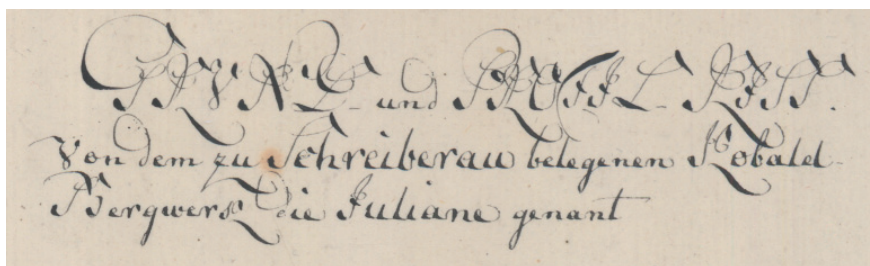 GRUND- und PROFIL- RISS.
Von dem zu Schreiberau belegenen Kobald-
Bergwerk die Juliane genant